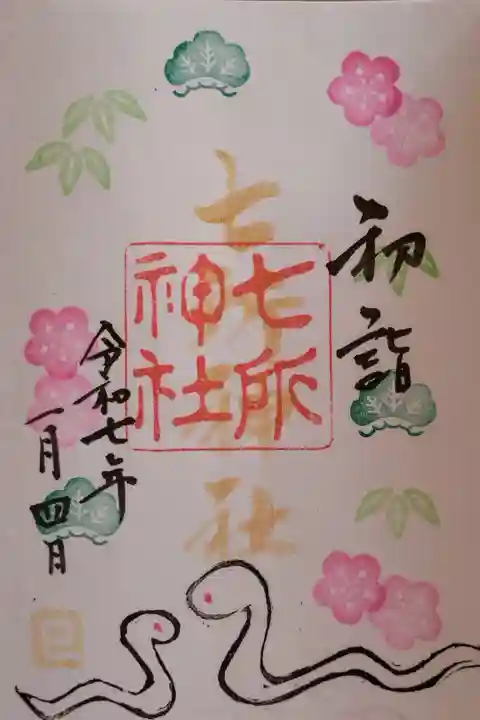 初詣
七所神社
七所神社
令和七年
一月四日
巳